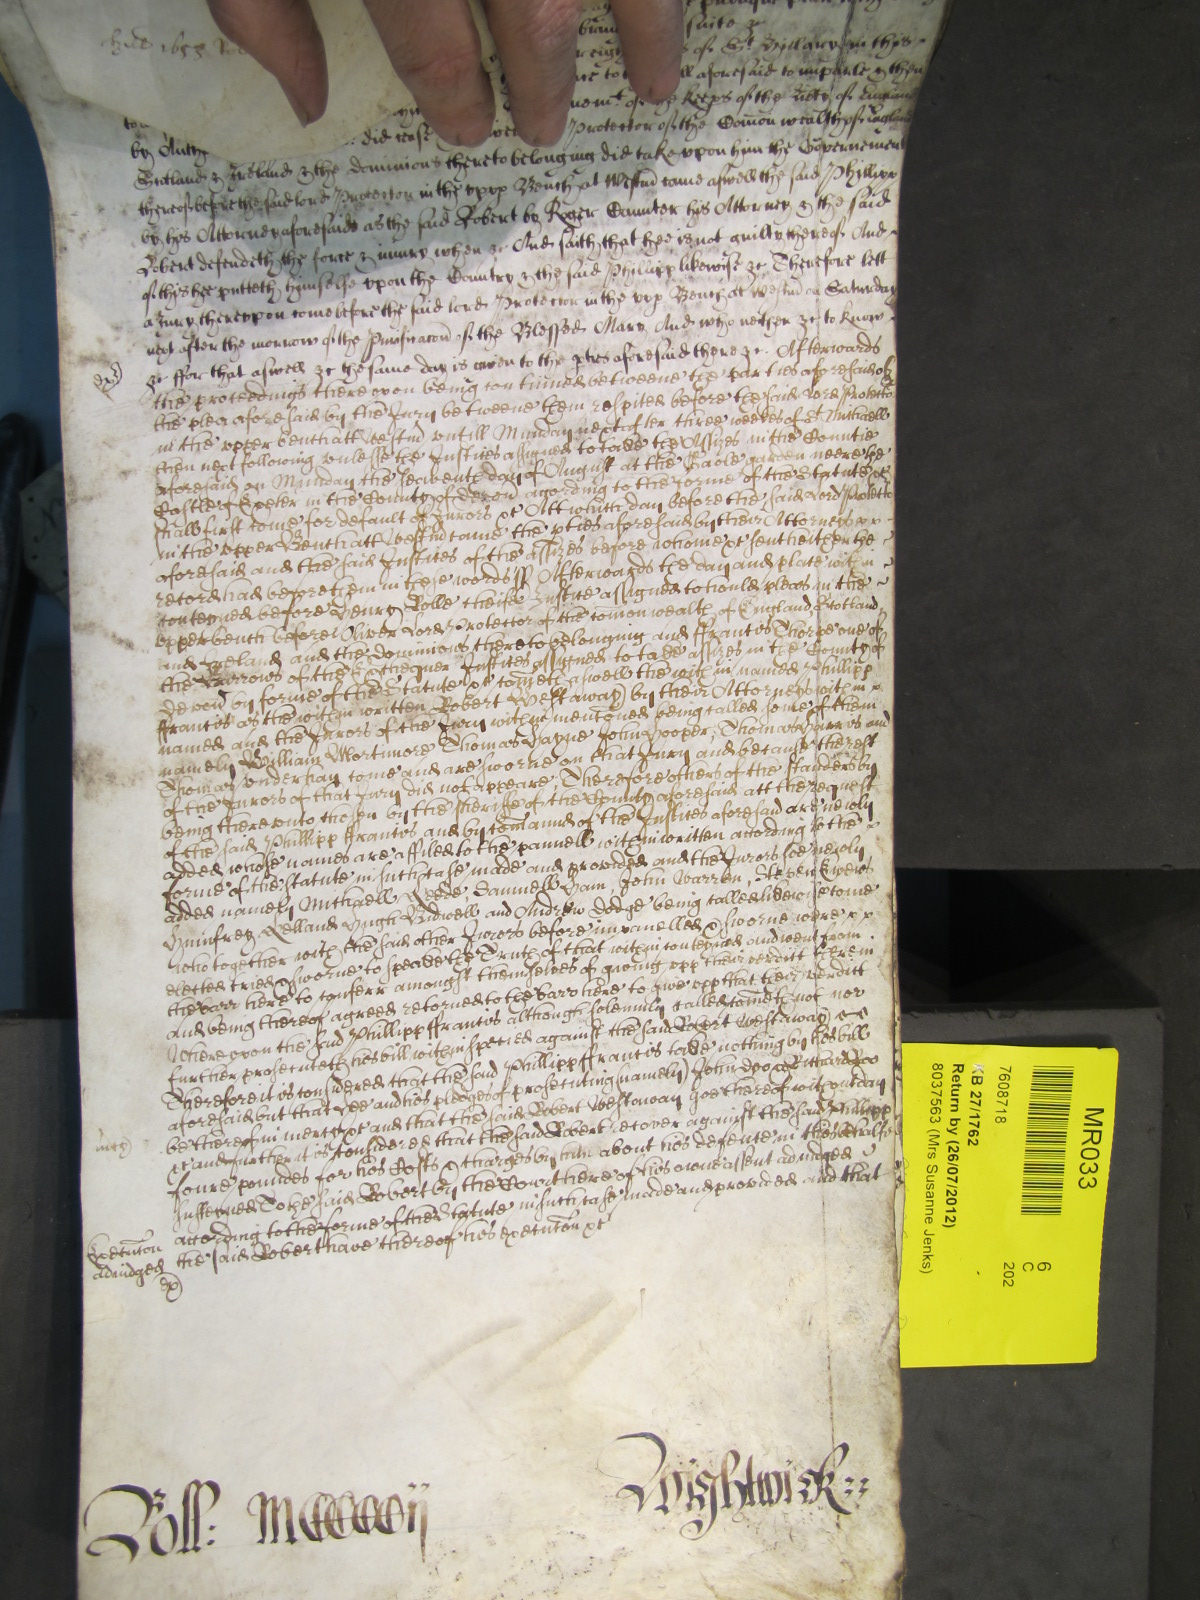 suite &c
of St Hillary in this
aforesaid to imparle & then
of the Keeps of the liberty of England
by Autho did cease Protector of the Comon wealth of England
Scotland & Ireland & the dominions thereto belonging did take upon him the Governement
thereof before the said lord Protector in the upp Bench at Westmr came aswell the said Phillipp
by his Attorney aforesaid as the said Robert by Roger Counter his Attorney & the said
Robert defendeth the force & iniury when &c And saith that hee is not guilty thereof And
of this hee putteth himselfe upon the Country & the said Phillipp likewise &c Therefore lett
a Jury thereupon come before the said lord Protector in the upp Bench at Westmr on Saturday
next after the morrow of the Purificacon of the Blessed Mary And who neither &c to know
&c ffor that aswell &c the same day is given to the pties aforesaid there &c. Afterwards
the proceedings thereupon being continued betweene the parties aforesaid of
the plea aforesaid by the Jury betweene them respited before the said Lord Protector
in the upper bench att Westmr untill Munday next after three weekes of St Michaell
then next following unlesse the Justices assigned to take the Assizes in the Countie
aforesaid on Munday the seaventh day of August at the Castle garden neere the
Castle of Exeter in the County of devon acording to the forme of the Statute &c
shall first come for default of Jurors &c Att which day before the said Lord Protector
in the upper Bench att Westmr came the pties aforesaid by their Attorneys
aforesaid and the said Justices of the assizes before whome &c sent hither the
record had before them in these words ss Afterwards the day and place within
conteyned before Henry Rolle cheife Justice assigned to hould pleas in the
upper bench before Oliver Lord Protector of the comon wealth of England Scotland
and Ireland and the dominions thereto belonging and ffrancis Thorpe one of
the Barrons of the Exchequer Justices assigned to take assizes in the County of
devon by forme of the Statute &c cometh aswell the within named Phillipp
ffrancis as the within written Robert Westaway by their Attorneys within
named and the Jurors of the Jury within mentioned being called some of them
namely William Mortimore Thomas Payne John Hooper, Thomas Harris and
Thomas Underhay come and are sworne on that Jury and because the rest
of the Jurors of that Jury did not appeare, Therefore others of the standers by
being thereunto chosen by the sheriffe of the County aforesaid att the request
of the said Phillipp ffrancis and by comaund of the Justices aforesaid are newly
added whose names are affiled to the pannell within written according to the
forme of the statute in such case made and provided and the Jurors soe newly
added namely Michaell Reede, Samuell Ham, John Warren, Stephen
Humfrey Kelland Hugh Bidwell and Andrew Dodge being called likewise come
who together with the said other Jurors before impanelled & sworne were
elected tried & sworne to speake the Truth of that within conteyned and went from
the barr here to conferr amongst themselves of giveing upp their verdict therein
and being thereof agreed returned to the barr here to give upp that their verdict
Whereupon the said Phillipp ffrancis although solemnly called cometh not nor
further prosecuteth his bill within specied against the said Robert Westaway
Therefore it is considered that the said Phillipp ffrancis take nothing by his bill
aforesaid but that hee and his pledges of prosecuting (namely) John Doo & Richard Roo
be thereof in mercy &c and that the said Robert Westaway Goe thereof without day
&c and further it is considered that the said Robert recover against the said Phillipp
foure poundes for his Costs & charges by him about his defence in this behalfe
susteyned To the said Robert by the Court here of his owne assent adiudged
according to the forme of the Statute in such case made and provided and that
the said Robert have thereof his execution &c
mcy
Execution
adiudged
Roll: MCCCCCij
Wightwick
MR033
7608718
6
C
202
KB 27/1762
Return by (26/07/2012)
8037563 (Mrs Susanne Jenks)